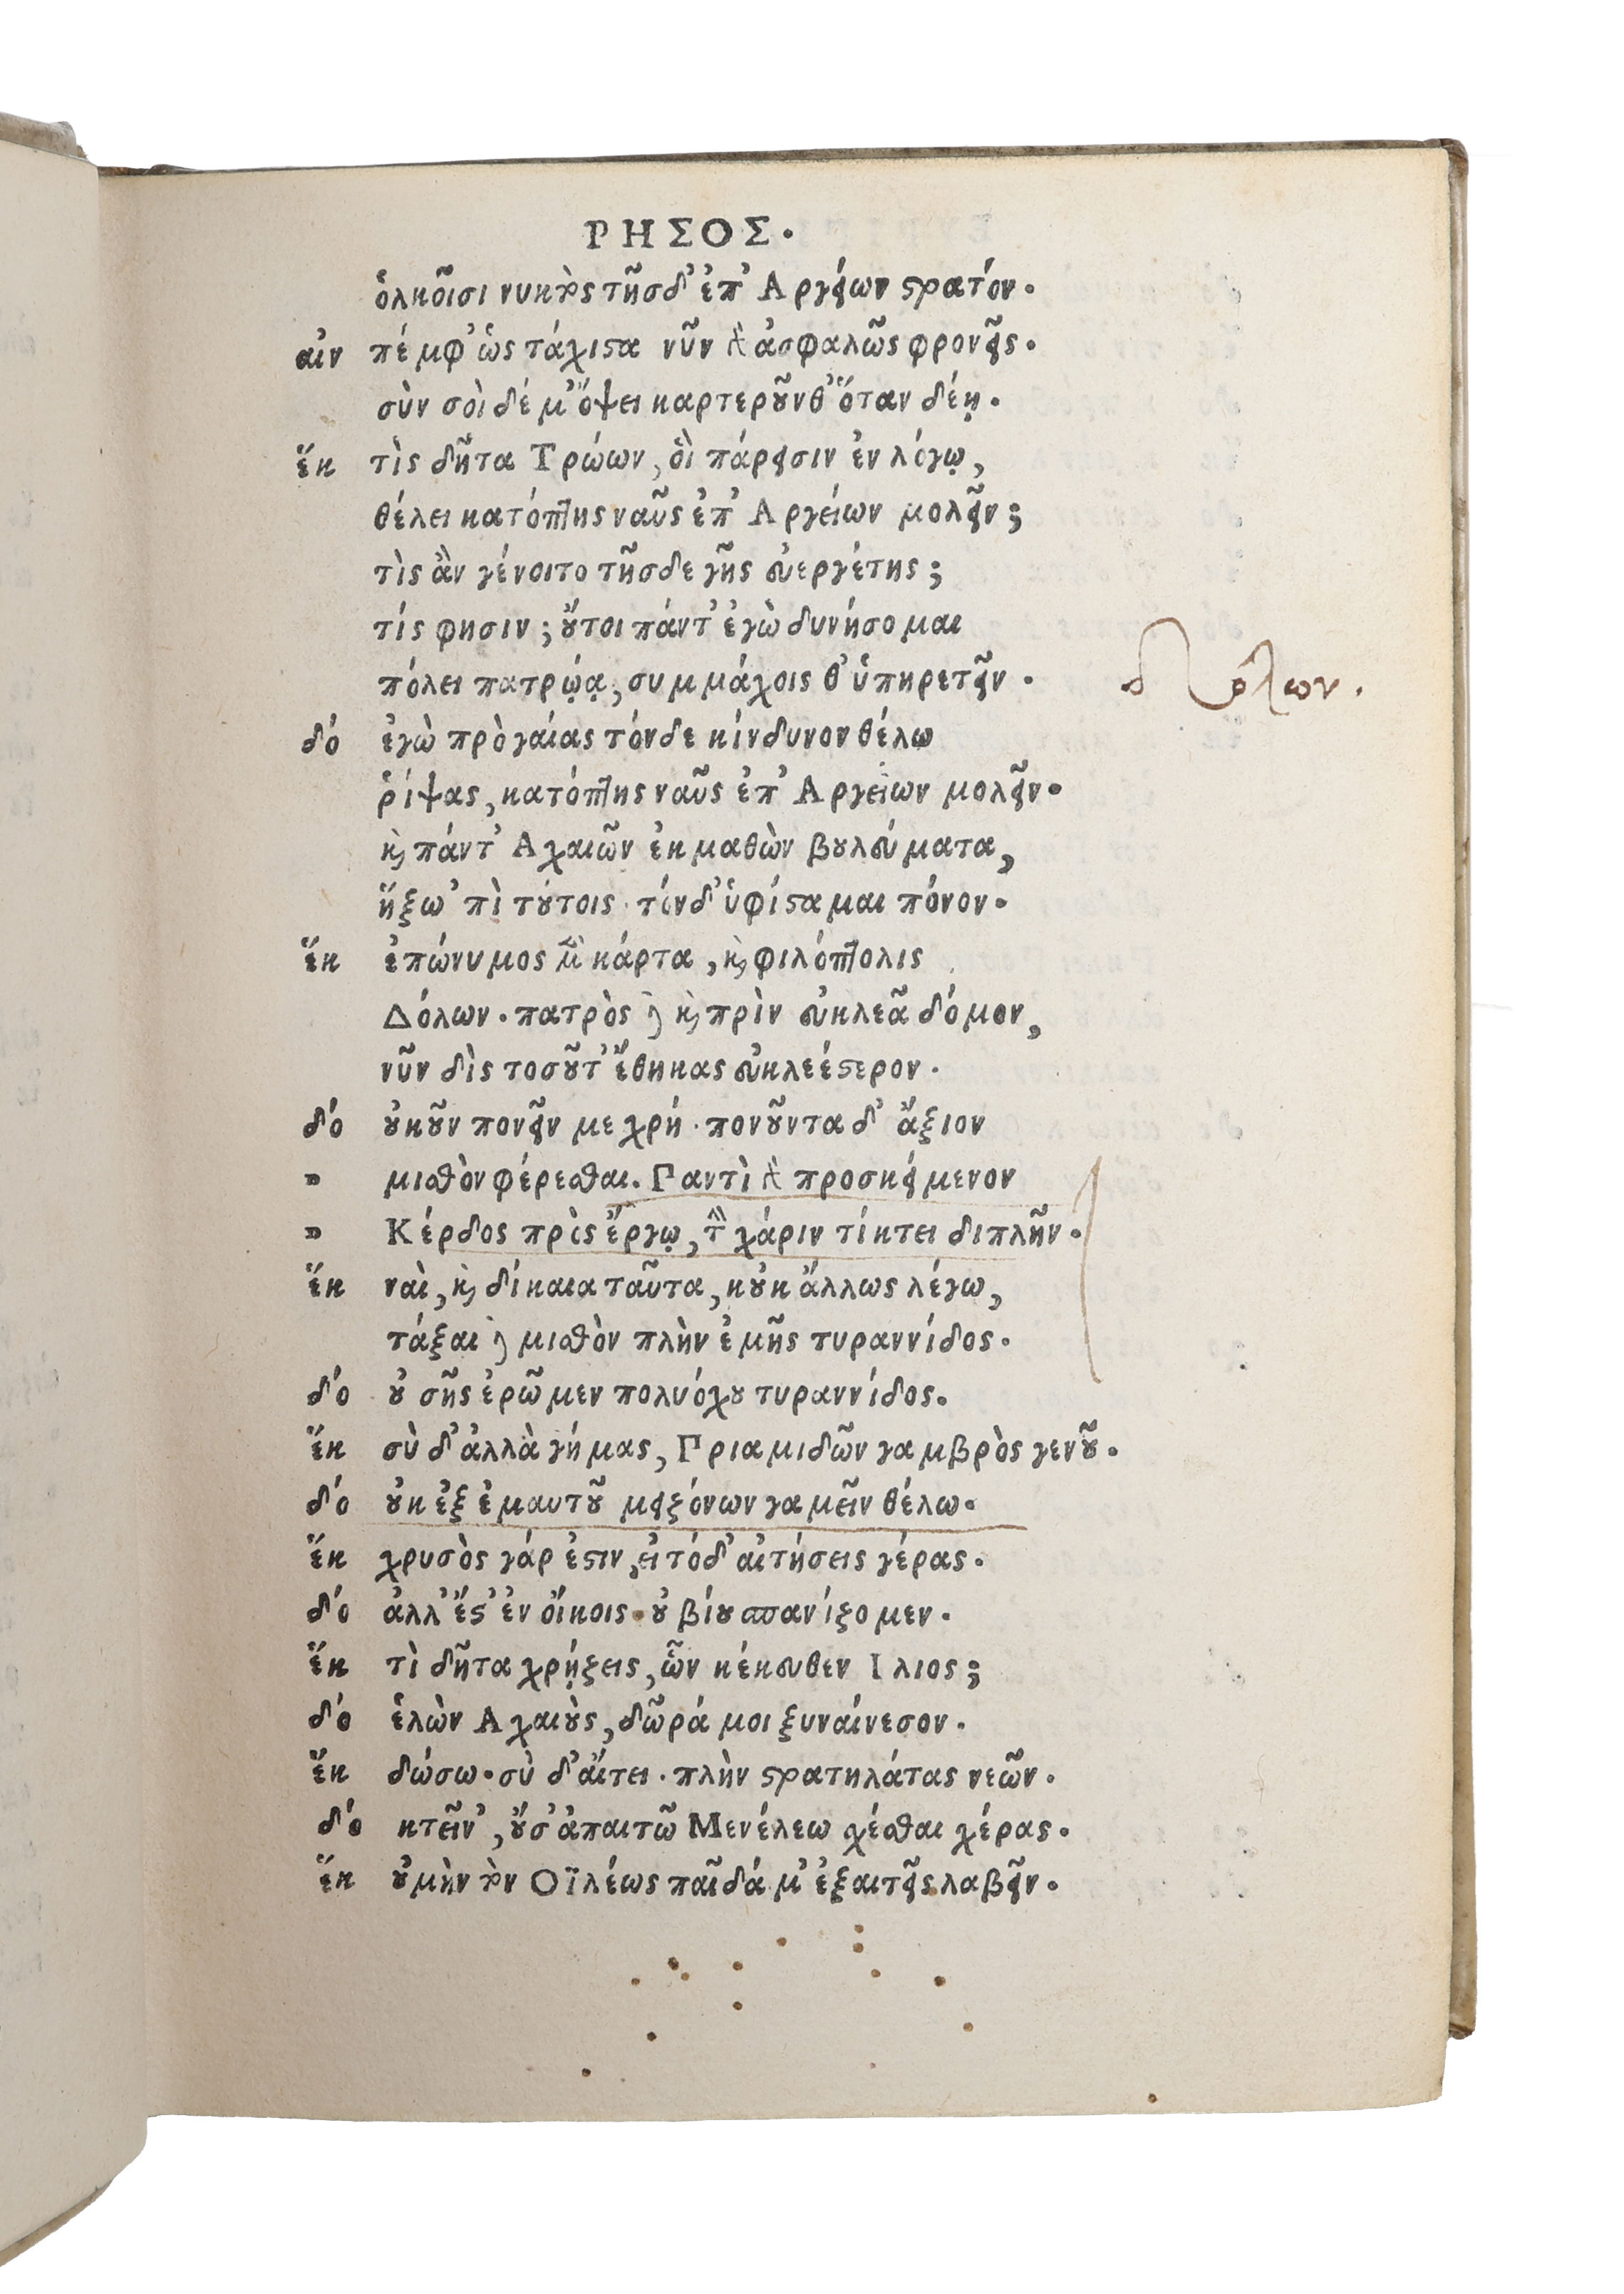 ΡΗΣΟΣ.
ὁλκοῖσι νυκτὸς τῆσδ' ἐπ' Αργείων στρατόν.
αἰν πέμφ' ὡς τάχιστα νῦν γὰρ ἀσφαλῶς φρονεῖς.
σὺν σοὶ δέ μ' ὄψει καρτεροῦνθ' ὅταν δέῃ.
ἕκ τὶς δῆτα Τρώων, ὃι πάρεισιν ἐν λόγῳ,
θέλει κατόπτης ναῦς ἐπ' Αργείων μολεῖν;
τὶς ἂν γένοιτο τῆσδε γῆς εὐεργέτης;
τίς φησιν; οὔτοι πάντ' ἐγὼ δυνήσομαι
πόλει πατρῴᾳ, συμμάχοις θ' ὑπηρετεῖν.
δόλων.
δό ἐγὼ πρὸ γαίας τόνδε κίνδυνον θέλω
ῥίψας, κατόπτης ναῦς ἐπ' Αργείων μολεῖν.
καὶ πάντ' Αχαιῶν ἐκμαθὼν βουλεύματα,
ἥξω' πὶ τούτοις· τόνδ' ὑφίσταμαι πόνον.
ἕκ ἐπώνυμος μὲν κάρτα, καὶ φιλόπτολις
Δόλων. πατρὸς δὲ καὶ πρὶν εὐκλεᾶ δόμον,
νῦν δὶς τοσοῦτ' ἔθηκας εὐκλεέστερον.
δό οὐκοῦν πονεῖν με χρή· πονοῦντα δ' ἄξιον
" μισθὸν φέρεσθαι. Παντὶ γὰρ προσκείμενον
" Κέρδος πρὸς ἔργῳ, τὴν χάριν τίκτει διπλῆν.
ἕκ ναὶ, καὶ δίκαια ταῦτα, κοὐκ ἄλλως λέγω,
τάξαι δὲ μισθὸν πλὴν ἐμῆς τυραννίδος.
δό οὐ σῆς ἐρῶμεν πολυόχου τυραννίδος.
ἕκ σὺ δ' ἀλλὰ γήμας, Πριαμιδῶν γαμβρὸς γενοῦ.
δό οὐκ ἐξ ἐμαυτοῦ μειζόνων γαμεῖν θέλω.
ἕκ χρυσὸς γάρ ἐστιν, εἰ τόδ' αἰτήσεις γέρας.
δό ἀλλ' ἔστ' ἐν οἴκοις. οὐ βίου σπανίζομεν.
ἕκ τὶ δῆτα χρῄζεις, ὧν κέκευθεν Ιλιος;
δό ἑλὼν Αχαιοὺς, δῶρά μοι ξυναίνεσον.
ἕκ δώσω. σὺ δ' αἴτει. πλὴν στρατηλάτας νεῶν.
δό κτεῖν', οὔσ' ἀπαιτῶ Μενέλεω χέσθαι χέρας.
ἕκ οὐ μὴν τὸν Οϊλέως παῖδά μ' ἐξαιτεῖς λαβεῖν.